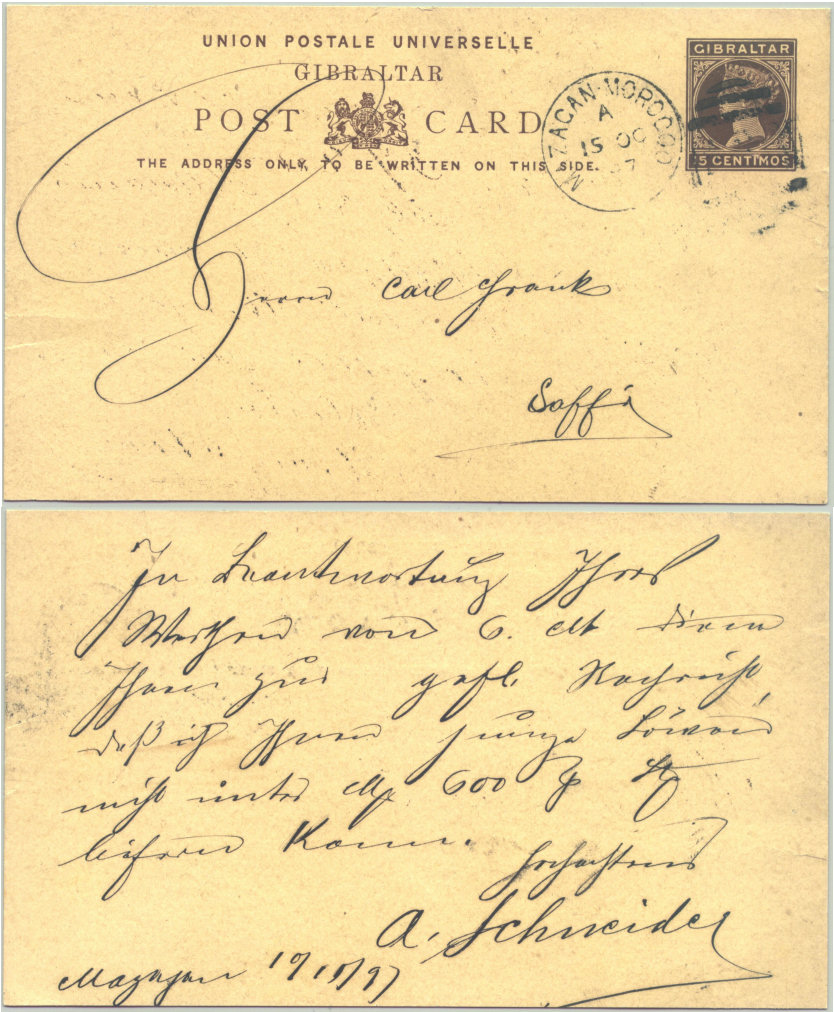 UNION POSTALE UNIVERSELLE
GIBRALTAR
POST CARD
THE ADDRESS ONLY TO BE WRITTEN ON THIS SIDE.
MAZAGAN-MOROCCO
A
15 OC
97
GIBRALTAR
5 CENTIMOS
Herrn Carl Frank
Saffi
In Beantwortung Ihres
Werthen vom 6. dt diene
Ihnen zur gefl. Nachricht,
daß ich Ihnen junge Löwen
nicht unter Mk 600 p
liefern kann.
Hochachtend
A. Schneider
Mazagan 10/97